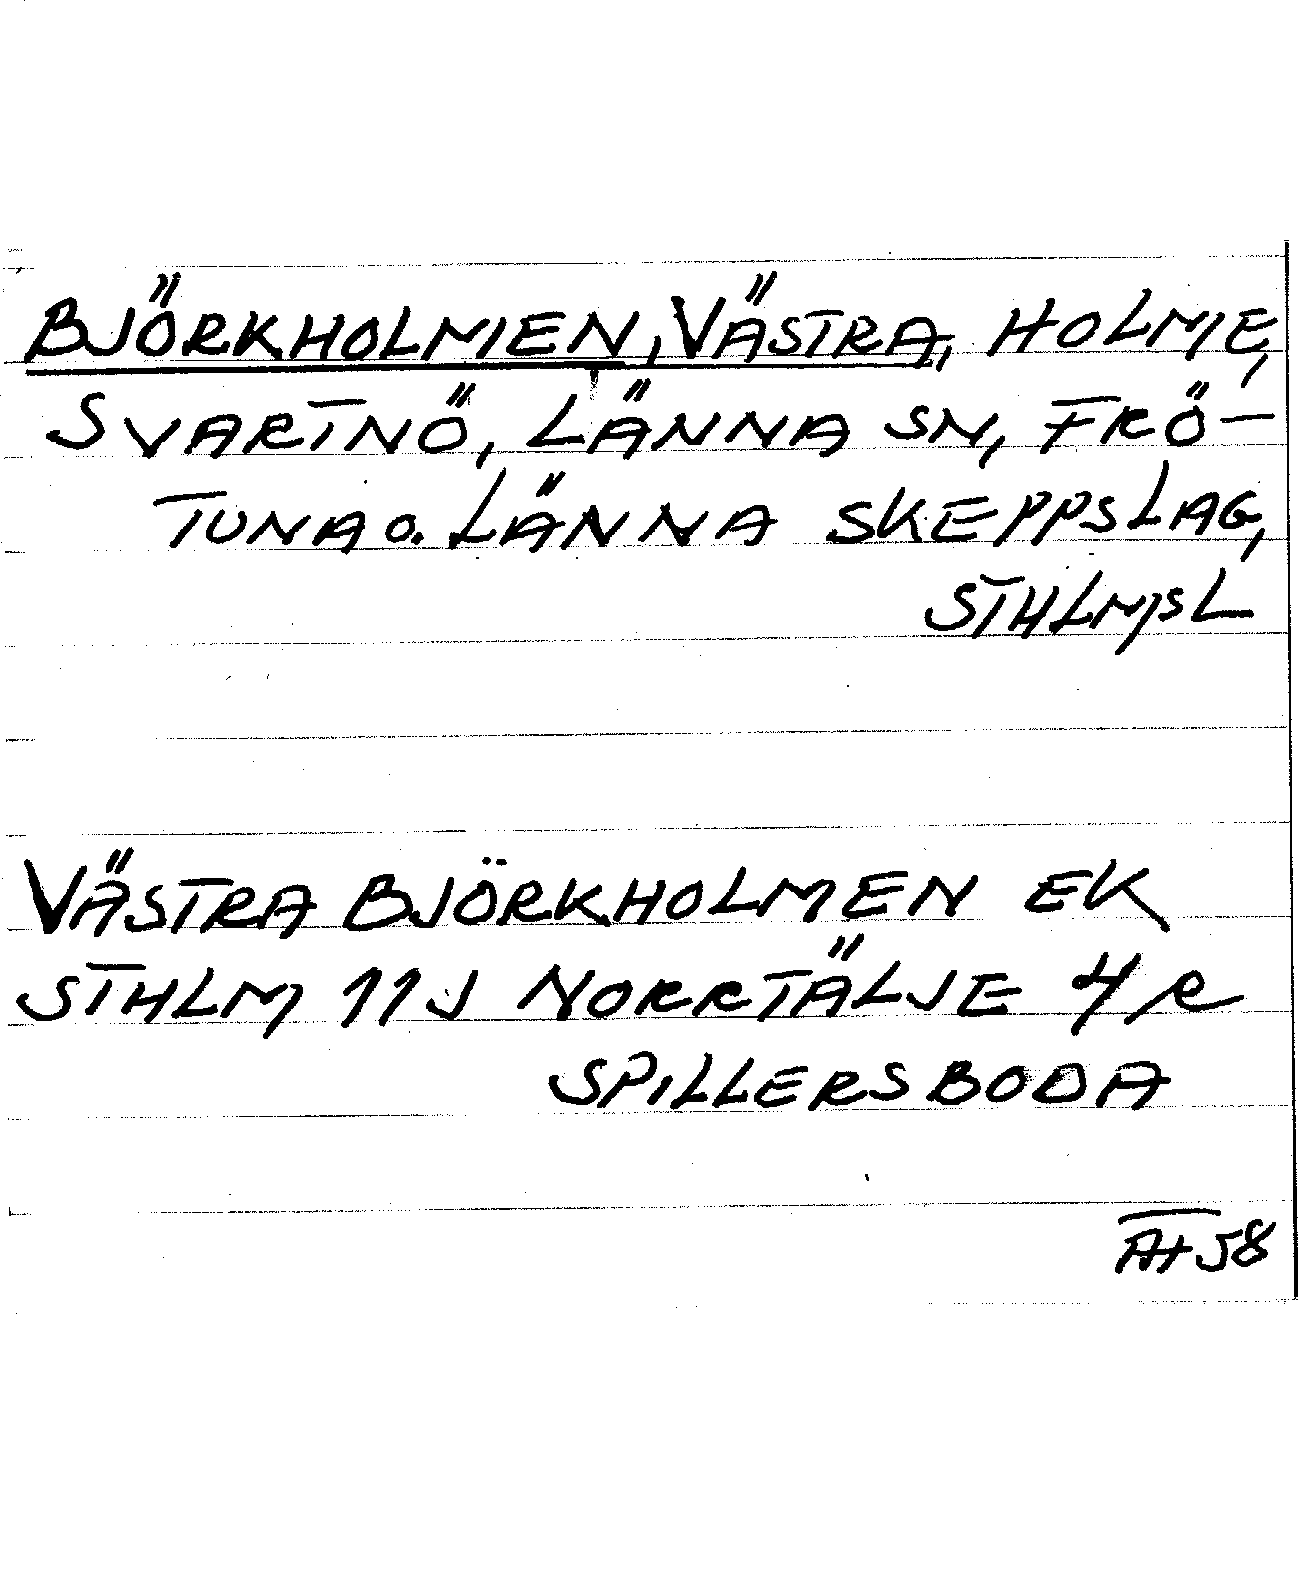 BJÖRKHOLMEN, VÄSTRA, HOLME,
SVARTNÖ, LÄNNA SN, FRÖ-
TUNA O. LÄNNA SKEPPSLAG,
STHLMSL
VÄSTRA BJÖRKHOLMEN EK
STHLM 11J NORRTÄLJE 4 R
SPILLERSBODA
58